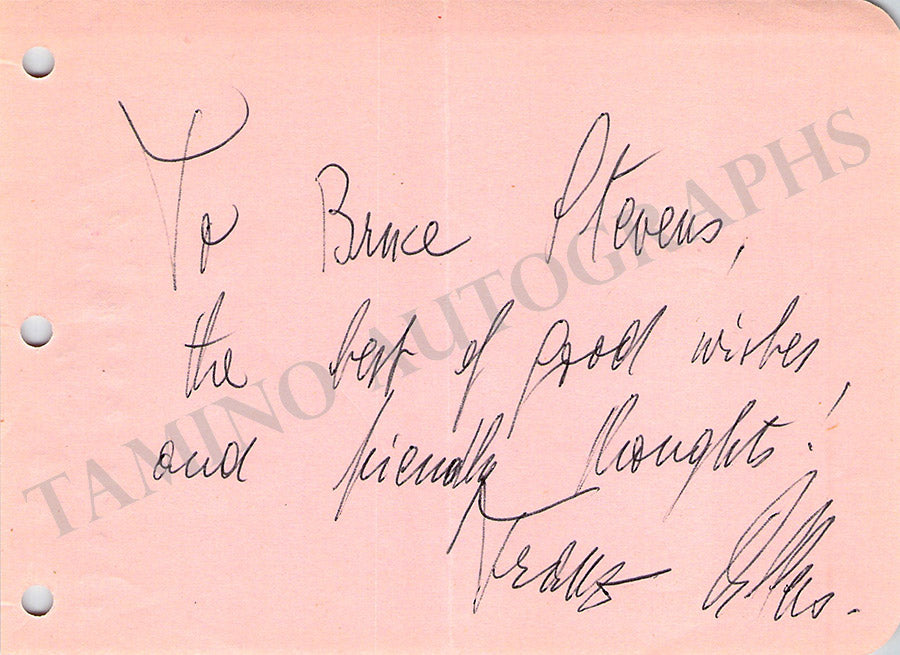 To Bruce Stevens,
the best of good wishes,
and friendly thoughts!
Franz Allers.
TAMINO AUTOGRAPHS